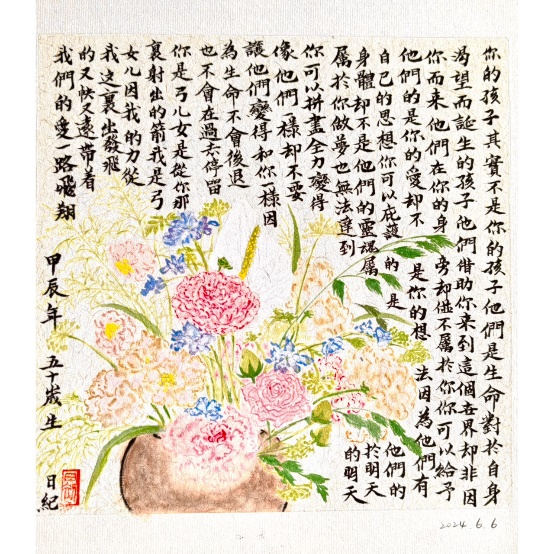 你的孩子其實不是你的孩子他們是生命對於自身
渴望而誕生的孩子他們借助你來到這個世界却非因
你而來他們在你的身旁却並不屬於你你可以給予
他們的是你的愛却不是你的想法因為他們有
自己的思想你可以庇護的是他們的
身體却不是他們的靈魂屬於明天
屬於你做夢也無法達到的明天
你可以拼盡全力變得
像他們一樣却不要
讓他們變得和你一樣因
為生命不會後退
也不會在過去停留
你是弓儿女是從你那
裏射出的箭我是弓
女儿因我的力從
我这裏出發飛
的又快又遠帶着
我們的愛一路飛翔
甲辰年 五十歲生日紀
2024.6.6